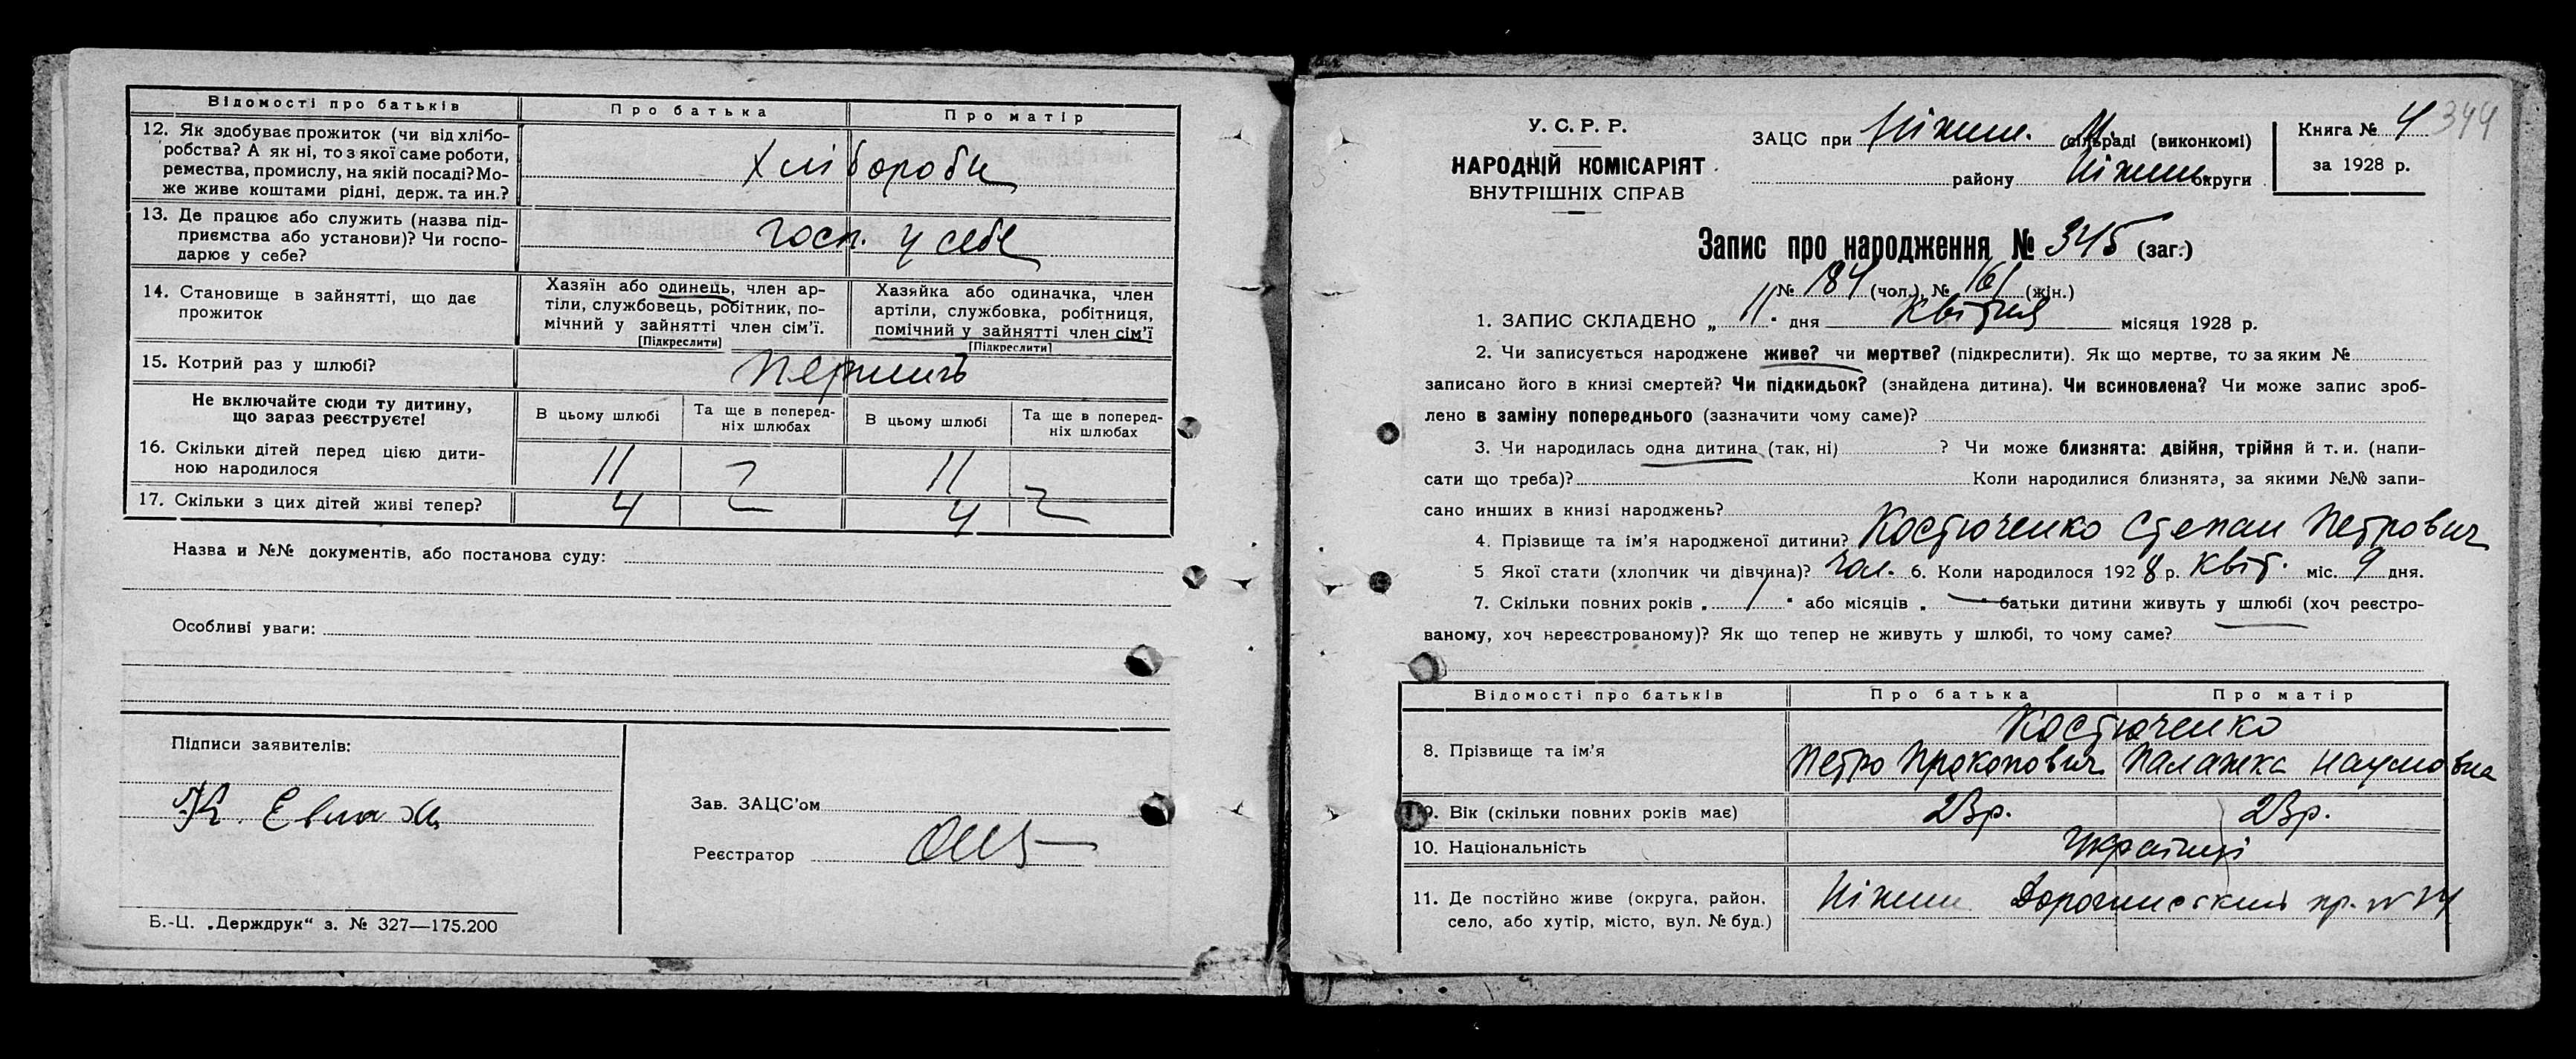 Відомості про батьків Про батька Про матір
12. Як здобуває прожиток (чи від хлібо-
робства? А як ні, то з якої саме роботи,
ремества, промислу, на якій посаді? Мо-
же живе коштами рідні, держ. та ин.?
Хлібороби
13. Де працює або служить (назва під-
приємства або установи)? Чи госпо-
дарює у себе?
госп. у себе
14. Становище в зайнятті, що дає
прожиток
Хазяїн або одинець, член ар-
тіли, службовець, робітник, по-
мічний у зайнятті член сім’ї.
[Підкреслити]
Хазяйка або одиначка, член
артіли, службовка, робітниця,
помічний у зайнятті член сім’ї
[Підкреслити]
15. Котрий раз у шлюбі?
Не включайте сюди ту дитину,
що зараз реєструєте!
В цьому шлюбі
Та ще в поперед-
ніх шлюбах
В цьому шлюбі
Та ще в поперед-
ніх шлюбах
16. Скільки дітей перед цією дити-
ною народилося
11 11
17. Скільки з цих дітей живі тепер?
4 4
Назва и №№ документів, або постанова суду:
Особливі уваги:
Підписи заявителів:
Зав. ЗАЦС’ом
Реєстратор
Б.-Ц. „Держдрук“ з. № 327—175.200
У. С. Р. Р.
НАРОДНІЙ КОМІСАРІЯТ
ВНУТРІШНІХ СПРАВ
ЗАЦС при Ніжин. М. сільраді (виконкомі)
району Ніжин округи
Книга № 4 344
за 1928 р.
Запис про народження № 345 (заг.)
№ 184 (чол.), № 161 (жін.)
1. ЗАПИС СКЛАДЕНО „ 11 “ дня Квітня місяця 1928 р.
2. Чи записується народжене живе? чи мертве? (підкреслити). Як що мертве, то за яким №
записано його в книзі смертей? Чи підкидьок? (знайдена дитина). Чи всиновлена? Чи може запис зроб-
лено в заміну попереднього (зазначити чому саме)?
3. Чи народилась одна дитина (так, ні) ? Чи може близнята: двійня, трійня й т. и. (напи-
сати що треба)? Коли народилися близнята, за якими №№ запи-
сано инших в книзі народжень?
4. Прізвище та ім’я народженої дитини? Костюченко Степан Петрович
5 Якої стати (хлопчик чи дівчина)? Чол. 6. Коли народилося 1928 р. Квіт. міс. 9 дня.
7. Скільки повних років „ “ або місяців „ “ батьки дитини живуть у шлюбі (хоч реєстро-
ваному, хоч нереєстрованому)? Як що тепер не живуть у шлюбі, то чому саме?
Відомості про батьків Про батька Про матір
Костюченко
8. Прізвище та ім’я Петро Прокопович Палажка Наумовна
9. Вік (скільки повних років має) 23р. 23р.
10. Національність Українці
11. Де постійно живе (округа, район,
село, або хутір, місто, вул. № буд.)
Ніжин